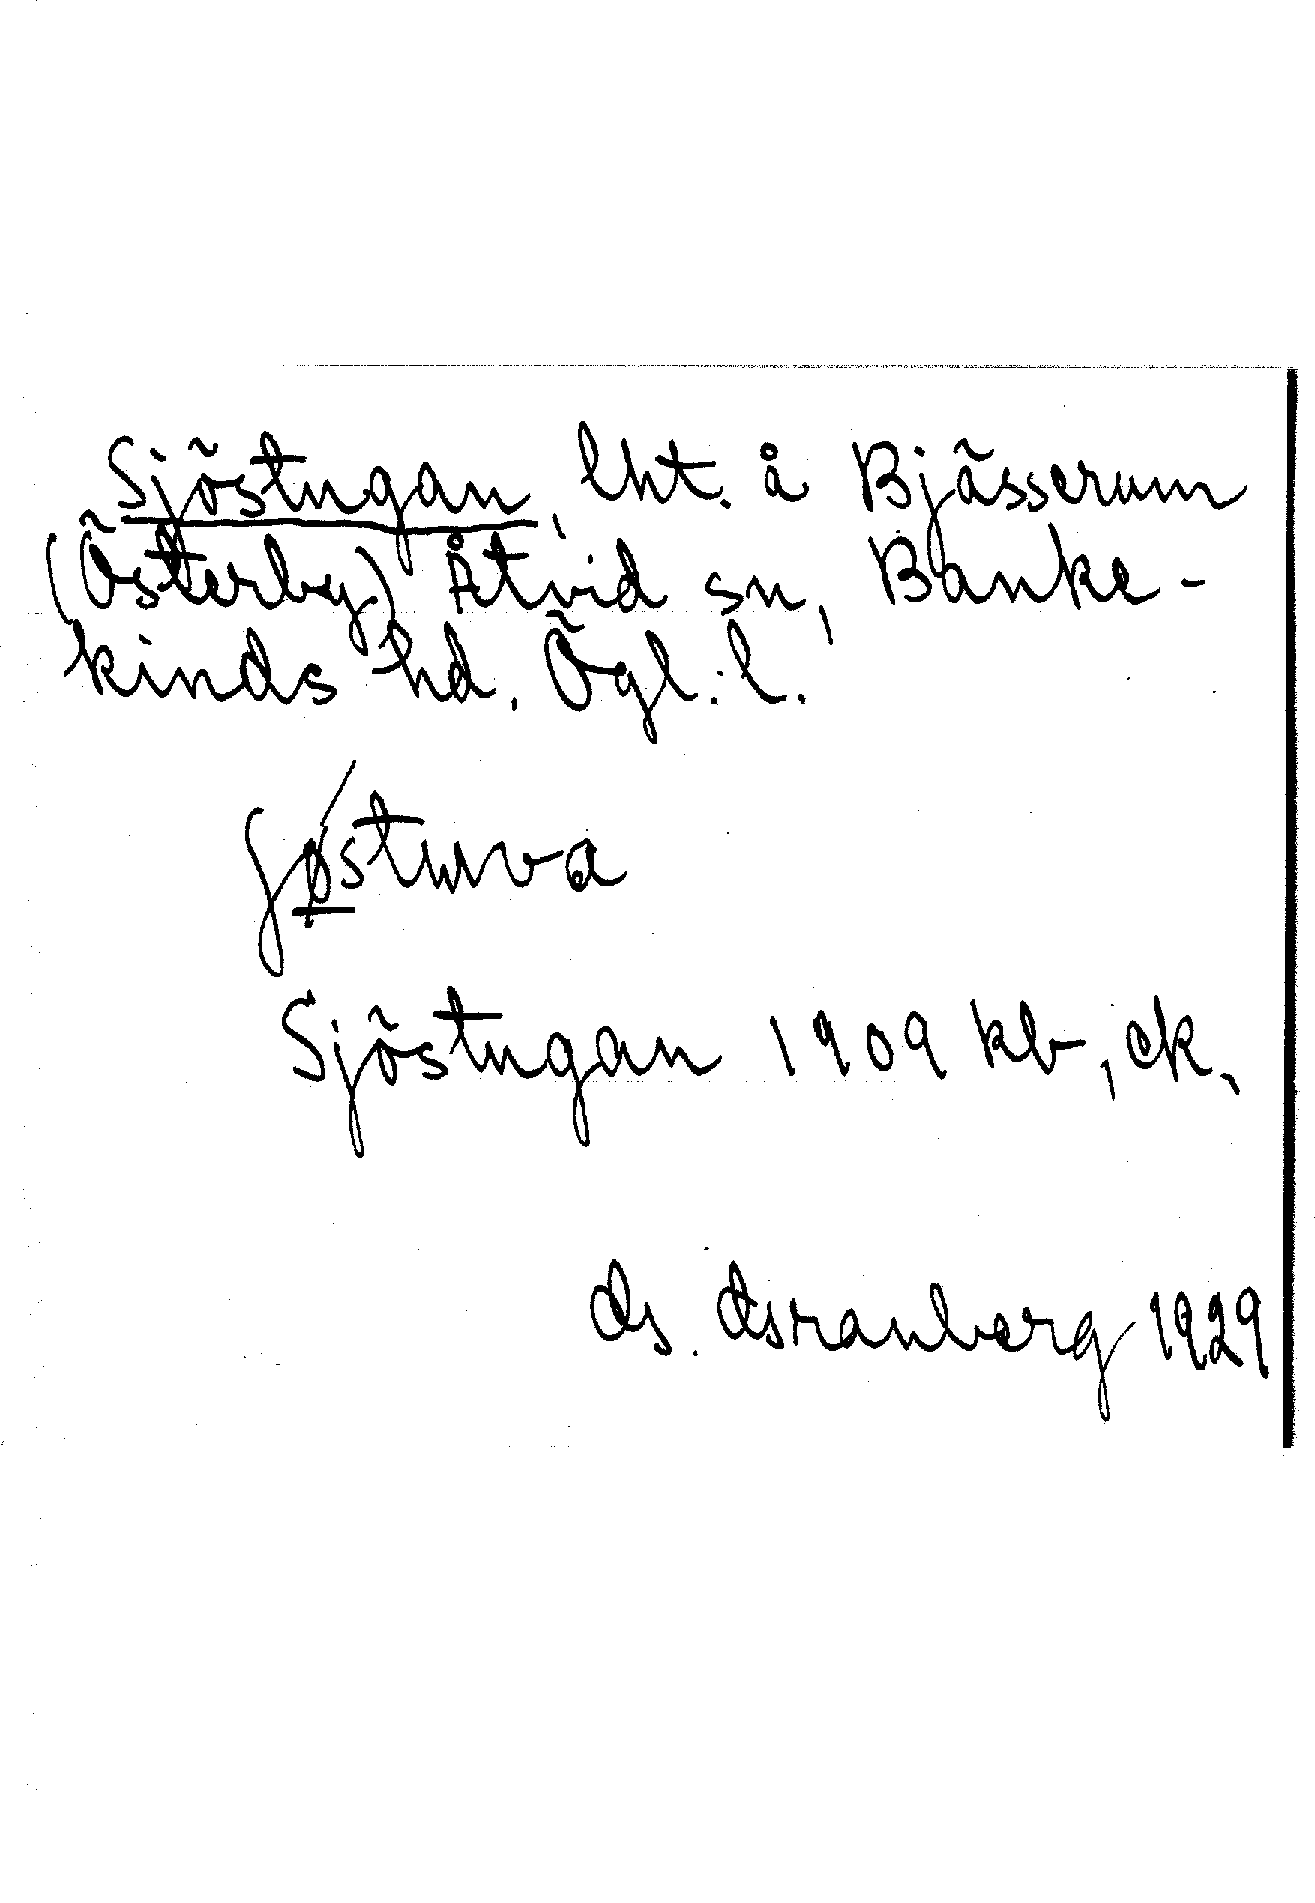 Sjöstugan, lht. å Bjässerum
(Österby) Åtvid sn, Banke-
kinds hd. Ögl. l.
Sjöstugan 1909 kb, ek.
Ds. Stranberg 1929